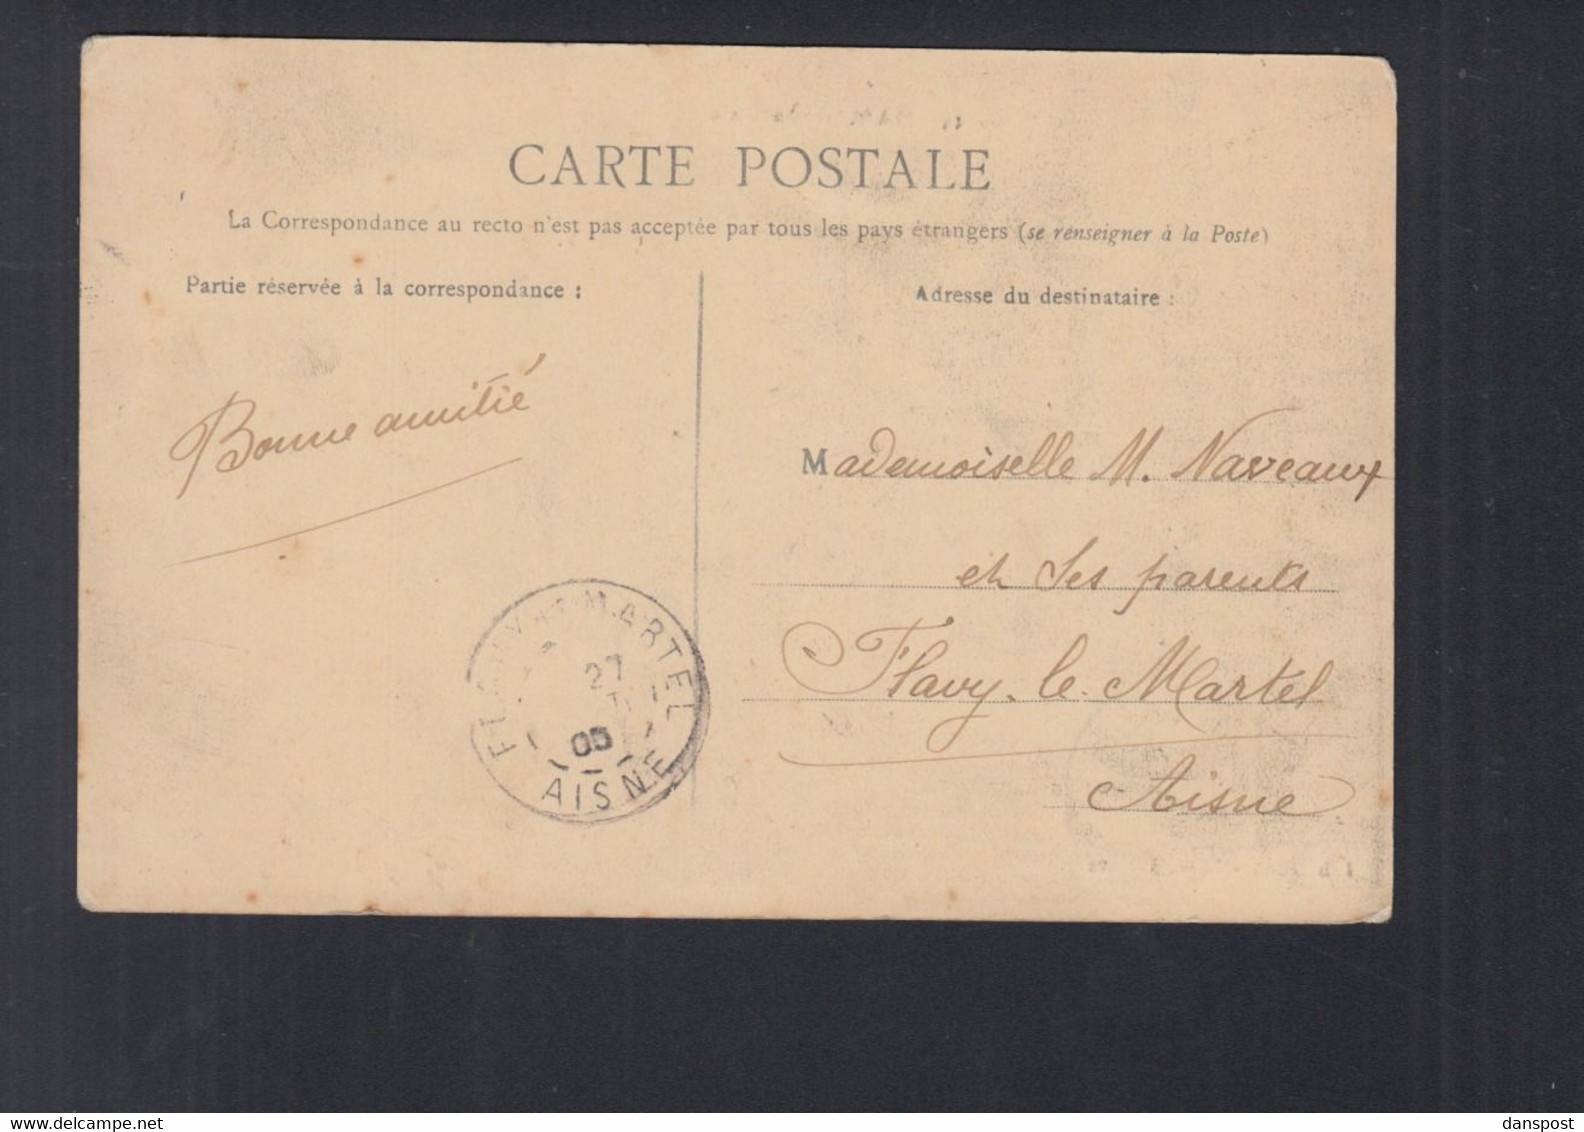 CARTE POSTALE
La Correspondance au recto n'est pas acceptée par tous les pays étrangers (se renseigner à la Poste)
Partie réservée à la correspondance :
Adresse du destinataire :
Bonne amitié
Mademoiselle M. Naveaux
et ses parents
Flavy-le-Martel
Aisne
FLAVY-LE-MARTEL
27
05
AISNE
delcampe.net
danspost